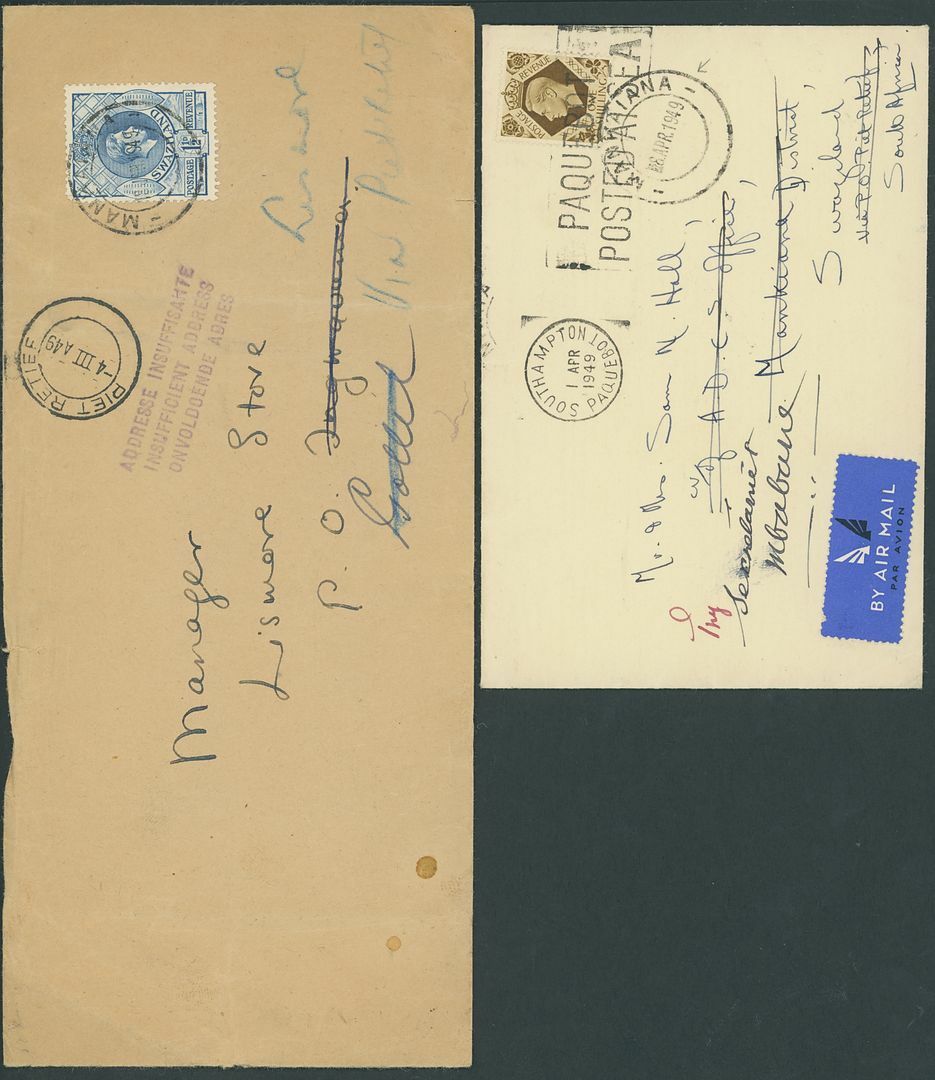 SWAZILAND
POSTAGE & REVENUE
1½D
MAN
PIET RETIEF
-4 III A49
ADDRESSE INSUFFISANTE
INSUFFICIENT ADDRESS
ONVOLDOENDE ADRES
Manager
Lismore Store
P. O. Ingwavuma
Via Piet Retief
POSTAGE REVENUE
ONE SHILLING
PAQUEBOT
POSTED AT SEA
MANKAIANA
28.APR.1949
SOUTHAMPTON
1 APR
1949
PAQUEBOT
Mr. & Mrs. Sam N. Hall,
c/o A. D. C.'s Office,
Mankiana District,
Swaziland
via P.O. Piet Retief
South Africa
Mbabane
BY AIR MAIL
PAR AVION